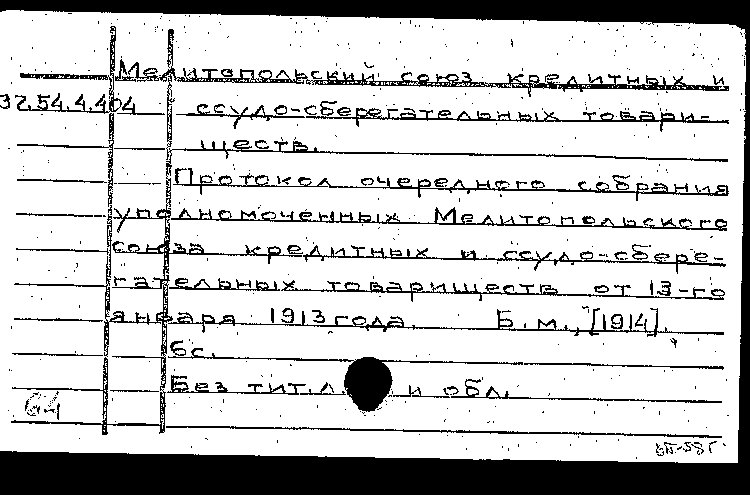 Мелитопольский союз кредитных и
32.54.4.404 ссудо-сберегательных товари-
ществ.
Протокол очередного собрания
уполномоченных Мелитопольского
союза кредитных и ссудо-сбере-
гательных товариществ от 13-го
января 1913 года. Б.м., [1914].
6с.
Без тит.л и обл.